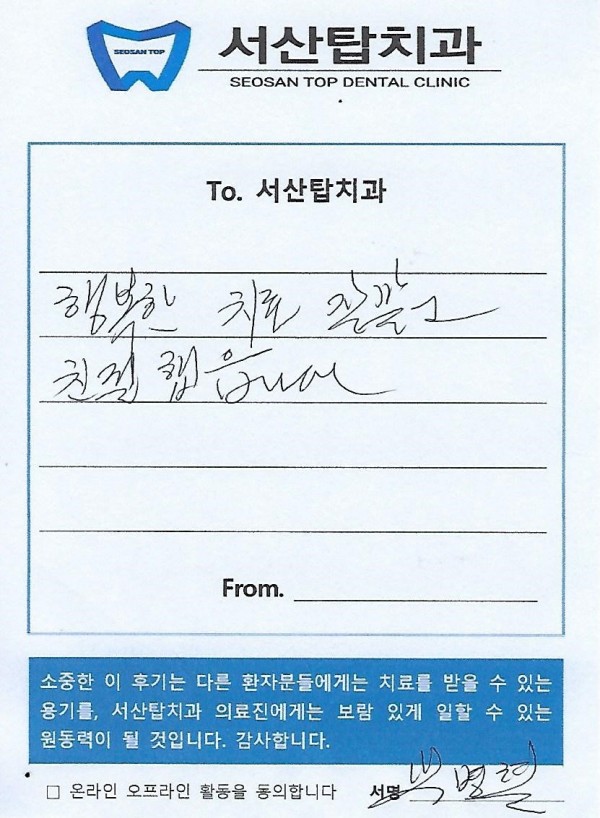 SEOSAN TOP
서산탑치과
SEOSAN TOP DENTAL CLINIC
To. 서산탑치과
행복한 치료
친절 했읍니다
From.
소중한 이 후기는 다른 환자분들에게는 치료를 받을 수 있는
용기를, 서산탑치과 의료진에게는 보람 있게 일할 수 있는
원동력이 될 것입니다. 감사합니다.
□ 온라인 오프라인 활동을 동의합니다 서명